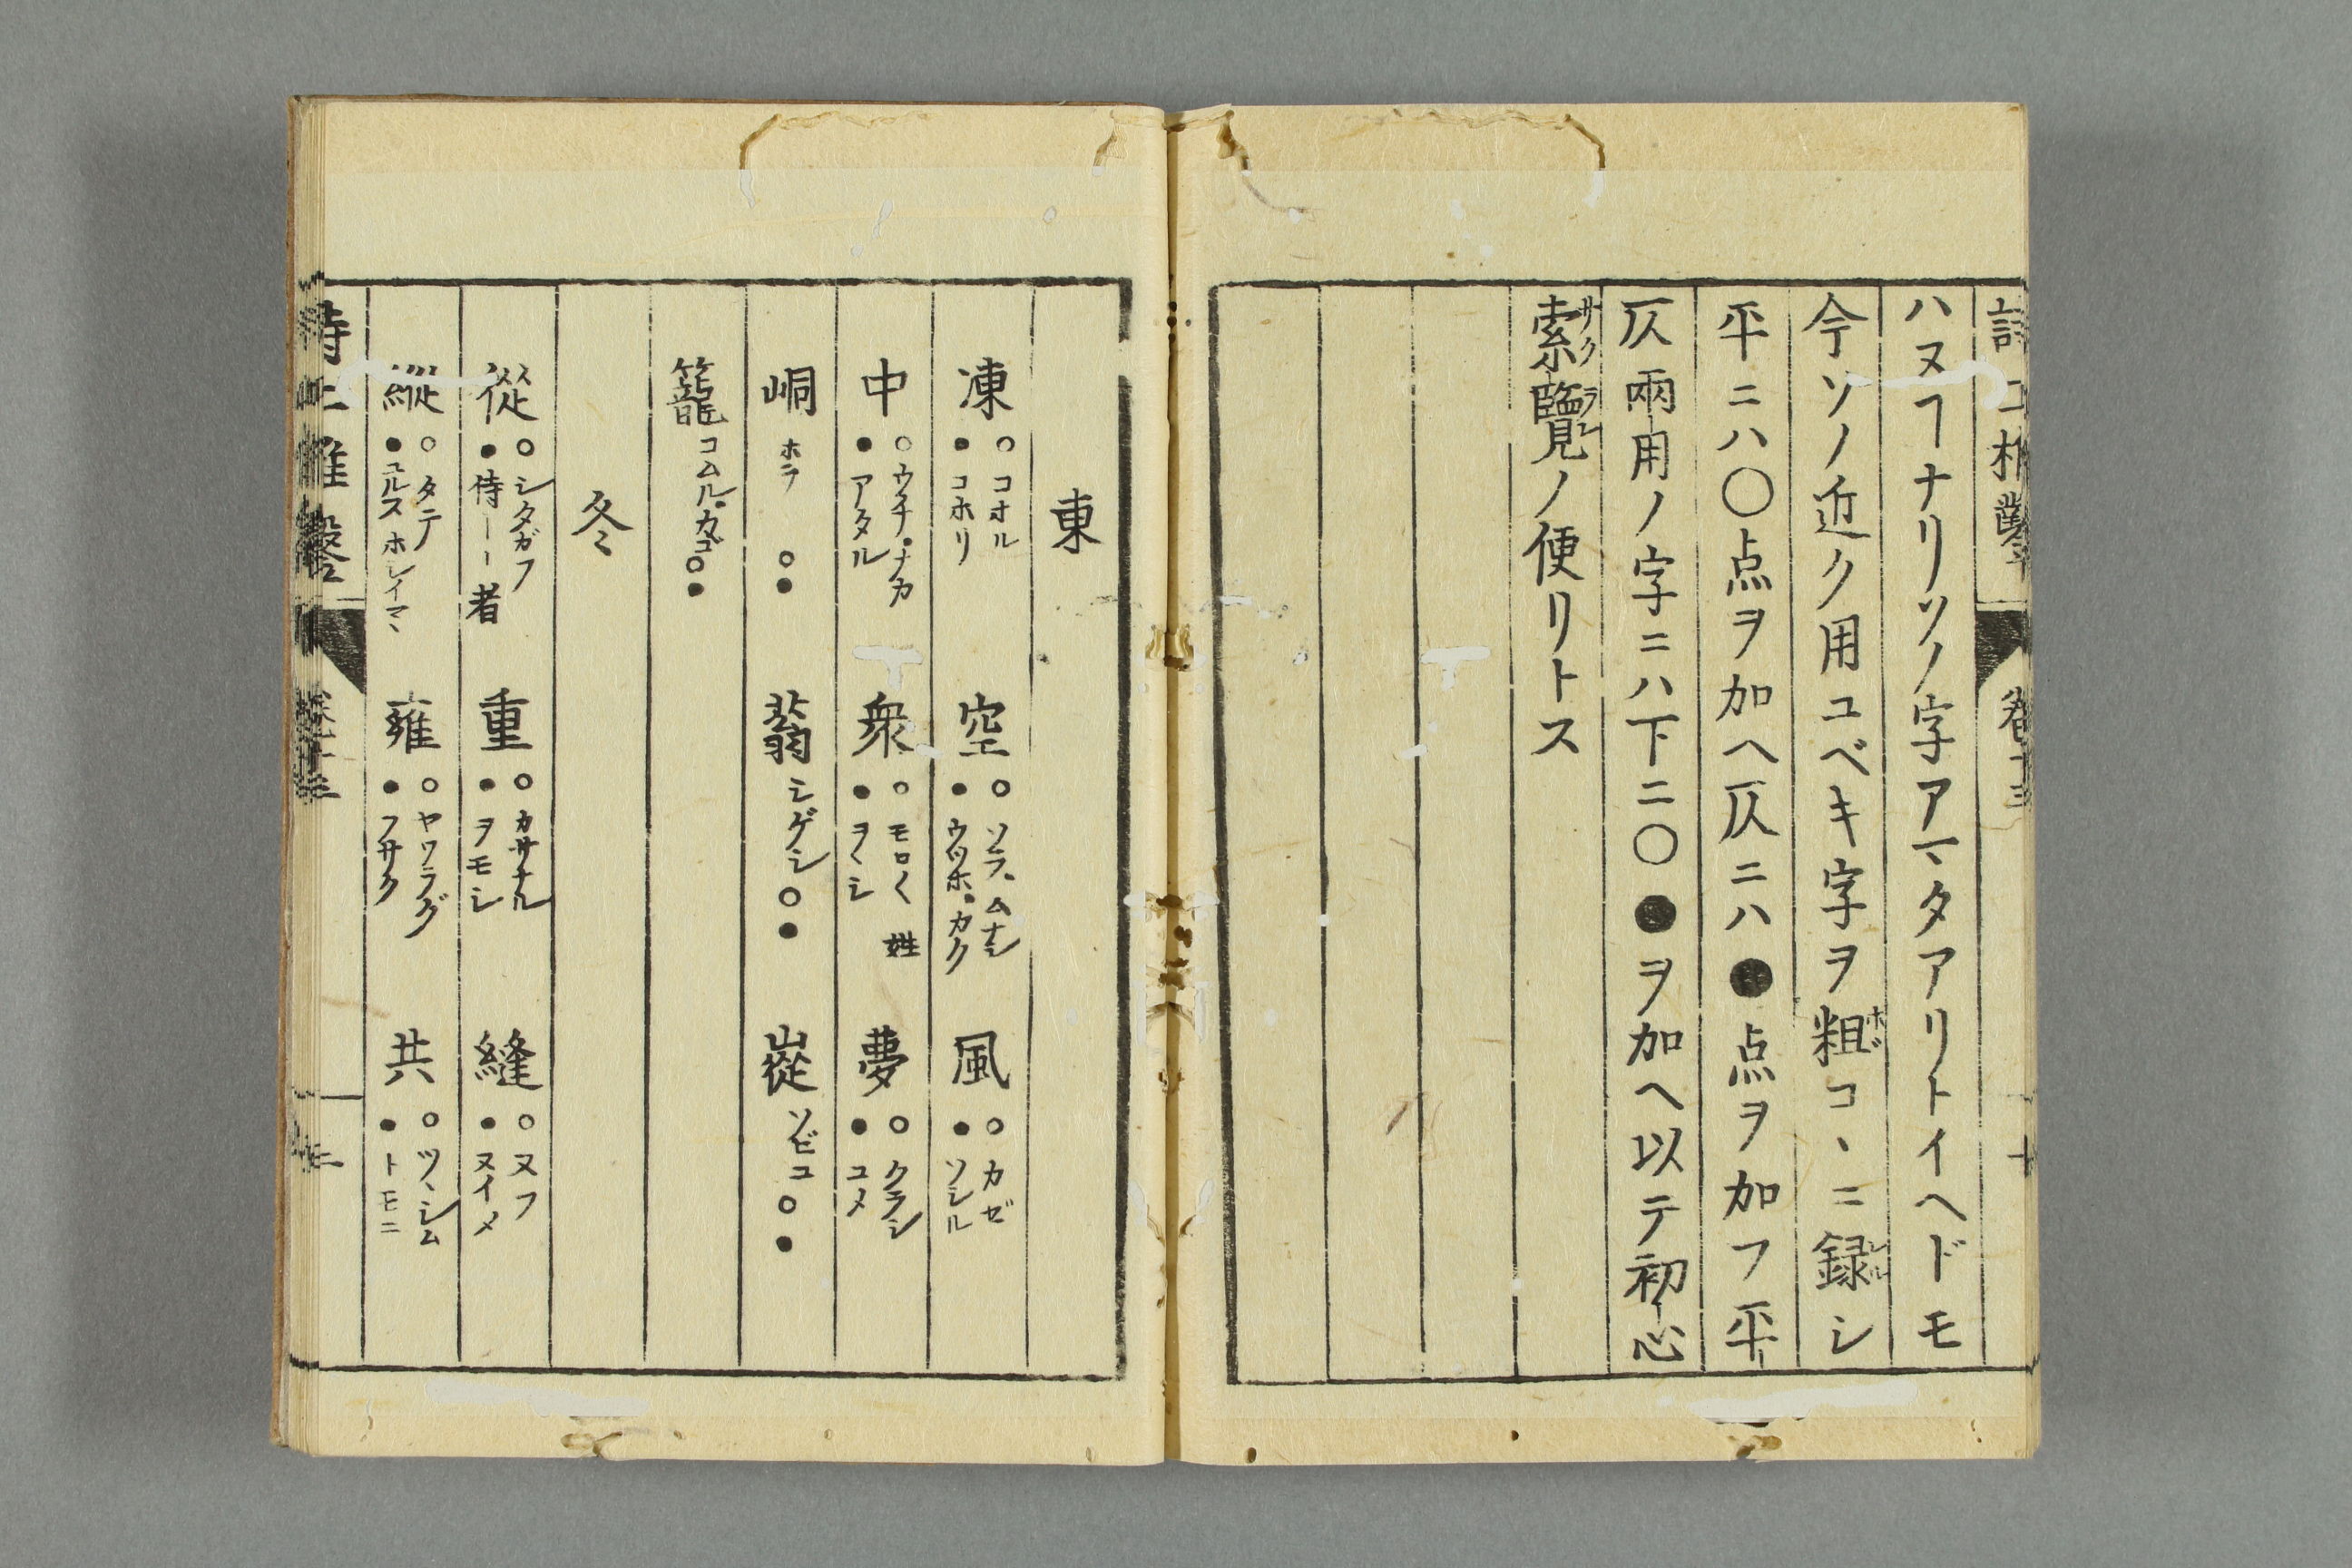 ハヌヿナリソノ字アマタアリトイヘドモ
今ソノ近ク用ユベキ字ヲ粗コヽニ録シ
平ニハ○点ヲ加ヘ仄ニハ●点ヲ加フ平
仄兩用ノ字ニハ下ニ○●ヲ加ヘ以テ初心
索覽ノ便リトス
東
凍 ○コオル ●コホリ 空 ○ソラ、ムナシ ●ウツホ、カク 風 ○カゼ ●ソシル
中 ○ウチ、ナカ ●アタル 衆 ○モロ〱 姓 ●ヲヽシ 夢 ○クラシ ●ユメ
峒 ○● 蓊 シゲシ ○● 嵷 ソビユ ○●
籠 コムル、カゴ ○●
冬
從 ○シタガフ ●侍ーー者 重 ○カサナル ●ヲモシ 縫 ○ヌフ ●ヌイメ
縱 ○タテ ●ユルス ホシイマヽ 雍 ○ヤワラグ ●フサク 共 ○ツヽシム ●トモニ